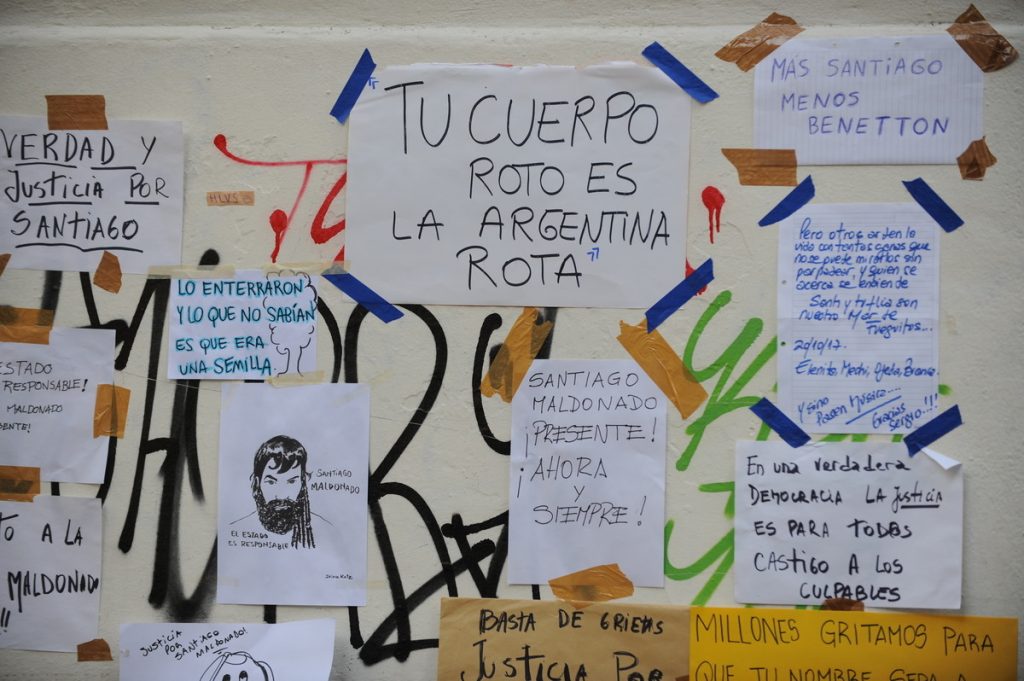 VERDAD Y
JUSTICIA POR
SANTIAGO
HLVS
TU CUERPO
ROTO ES
LA ARGENTINA
ROTA
MÁS SANTIAGO
MENOS
BENETTON
LO ENTERRARON
Y LO QUE NO SABÍAN
ES QUE ERA
UNA SEMILLA.
Pero otros arden la
vida con tantas ganas que
no se puede mirarlos sin
parpadear, y quien se
acerca se enciende
Santi y
son
nuestro Mar de
Fueguitos...
20/10/17.
Y sino
Pasen Música...
Gracias
Sergio...!!!
ESTADO
RESPONSABLE!
MALDONADO
SENTE!
SANTIAGO
MALDONADO
EL ESTADO
ES RESPONSABLE
SANTIAGO
MALDONADO
¡PRESENTE!
¡AHORA
Y
SIEMPRE!
En una verdadera
DEMOCRACIA LA JUSTICIA
ES PARA TODOS
CASTIGO A LOS
CULPABLES
TO A LA
MALDONADO
!!
JUSTICIA
POR
SANTIAGO MALDONADO!
BASTA DE
JUSTICIA POR
MILLONES GRITAMOS PARA
QUE TU NOMBRE SEPA A